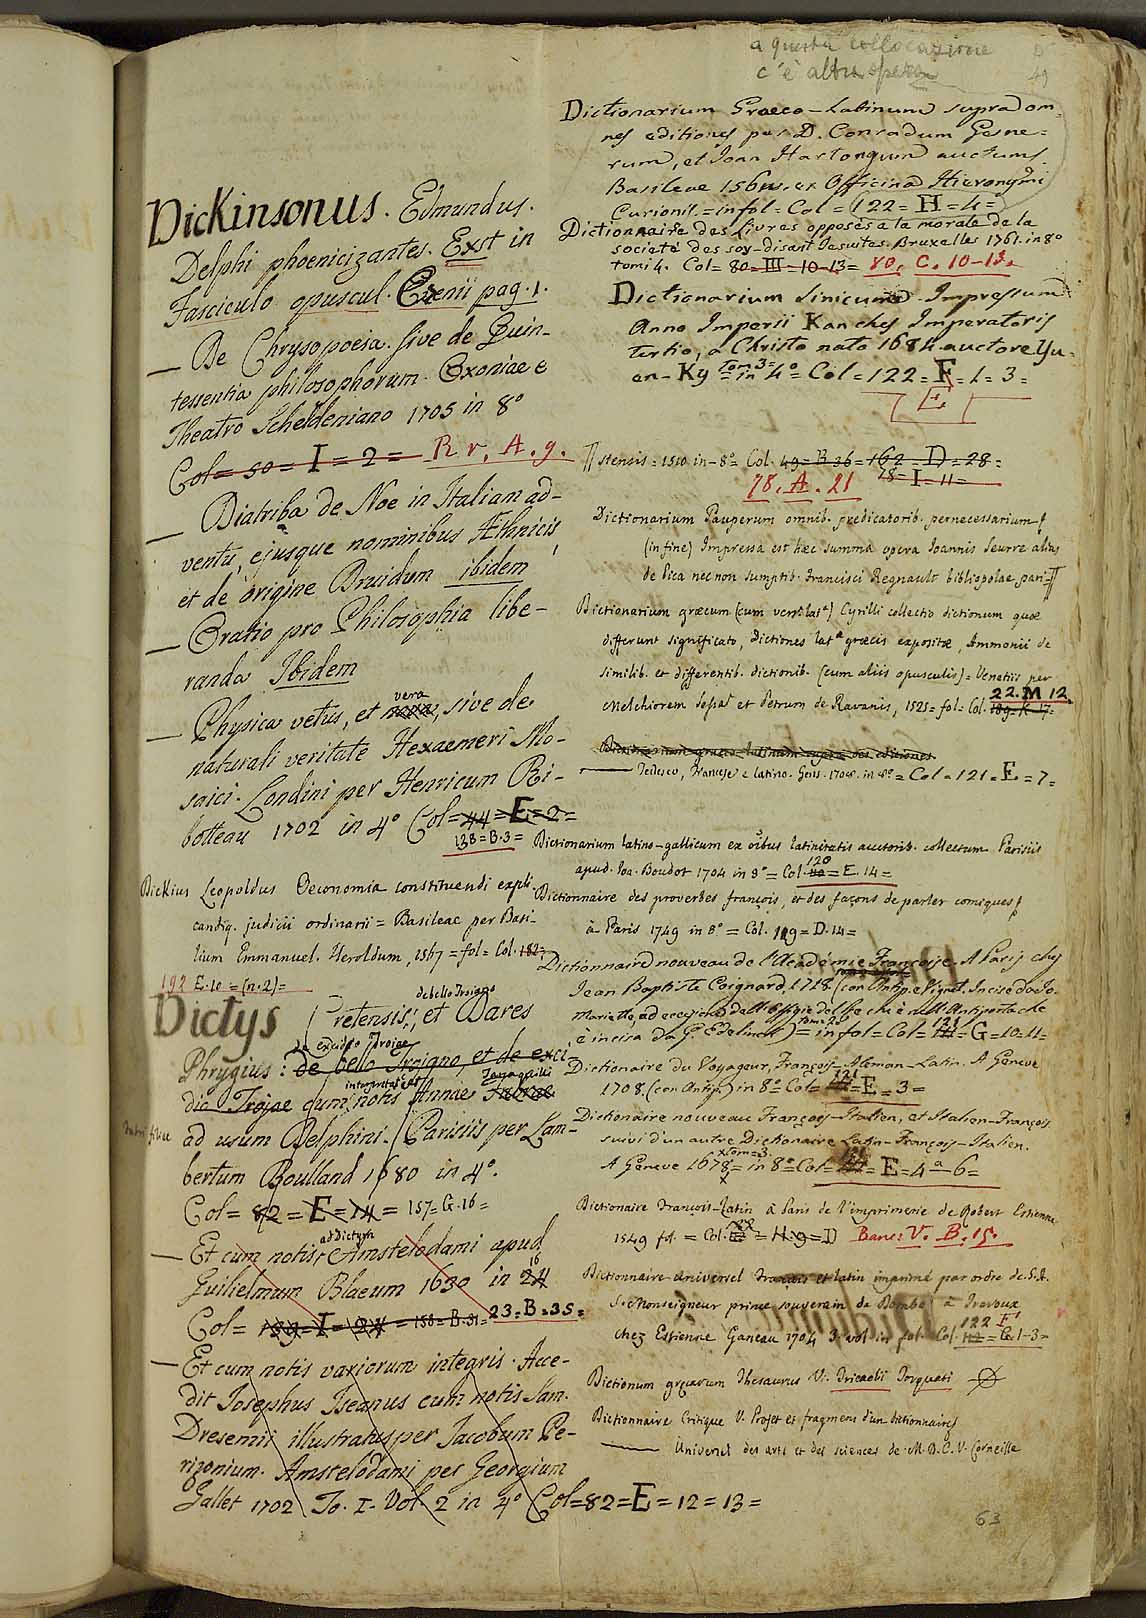 a questa collocazione
c'è altra opera
Dickinsonus. Edmundus.
Delphi phoenicizantes. Exst in
Fasciculo opuscul. Crenii pag. 1.
— De Chrysopoeia. sive de Quin-
tessentia philosophorum. Oxoniae e
Theatro Scheldeniano 1705 in 8°
Col= 50= I= 2= R r. A. 9.
— Diatriba de Noe in Italiam ad-
ventu, ejusque nominibus Æthnicis
et de origine Druidum ibidem
— Oratio pro Philosophia libe-
randa Ibidem
— Physica vetus, et vera, sive de
naturali veritate Hexaemeri Mo-
saici. Londini per Henricum Ri-
botteau 1702 in 4° Col= 44= E= 2=
138= B. 3=
Dickius Leopoldus Oeconomia constituendi expli-
candiq. judicii ordinarii= Basileae per Basi-
lium Emmanuel. Heroldum, 1567= fol= Col. 182=
192 E. 10= (n. 2)=
Dictys Cretensis, et Dares
de bello Troiano
de excidio Trojae
Phrygius: de bello Troiano, et de exci-
dio Trojae cum notis Annae
interpretat. et
ad usum Delphini. Parisiis per Lam-
bertum Roulland 1680 in 4°.
Col= 82= E= 14= 157= G. 16=
— Et cum notis Amstelodami apud
ad Dictyn
Guilielmum Blaeum 1630 in 24
16
Col= 139= I= 24= 158= B. 31= 23= B= 35=
— Et cum notis variorum integris. Acce-
dit Josephus Iscanus cum notis Sam.
Dresemii illustratus per Jacobum Pe-
rizonium. Amstelodami per Georgium
Gallet 1702 To. I. Vol. 2 in 4° Col=82=E=12=13=
Dictionarium Graeco-Latinum supra om-
nes editiones per D. Conradum Gesne-
rum, et Joan Hartongum auctum.
Basileae 156 ex Officina Hieronymi
Curionis.= in fol= Col= 122= H= 4=
Dictionnaire des Livres opposés a la morale de la
societé des soy-disant Jesuites. Bruxelles 1761. in 8°
tomi 4. Col= 80= III= 10-13= 80. C. 10-13.
Dictionarium Sinicum. Impressum
Anno Imperii Kanches Imperatoris
tertio, a Christo nato 1684. auctore Yu-
en-Ky tom 3= in 4°= Col= 122= F= 1= 3=
E
stensis= 1510 in-8°= Col. 49= B 36= 162= D= 28=
78. A. 21 78= I= 11=
Dictionarium Pauperum omnib. predicatorib. pernecessarium
(in fine) Impressa est hæc summa opera Joannis Seurre alias
de Pica necnon sumptib. Francisci Regnault bibliopolae pari-
Dictionarium græcum (cum vers. lat.) Cyrilli collectio dictionum quæ
differunt significato, Dictiones lat. græcis expositæ, Ammonii de
similib. et differentib. dictionib. (cum aliis opusculis)= Venetiis per
Melchiorem Sessa et Petrum de Ravanis, 1525= fol= Col. 189= K= 17=
22. M 12
Dictionarium graeco latinum supra oes editiones
— Tedesco, Francese e latino. Gen. 1708. in 8°= Col= 121= E= 7=
Dictionarium latino-gallicum ex oibus latinitatis auctorib. collectum Parisiis
apud. Joa. Boudot 1704 in 8°= Col. 120= E. 14=
Dictionnaire des proverbes françois, et des façons de parler comiques
à Paris 1749 in 8°= Col. 119= D. 14=
Dictionnaire nouveau de l'Académie Françoise. A Paris chez
Jean Baptiste Coignard, 1718.
Mariette, ad eccezione dell'Effigie del Re che è nell'Antiporta che
è incisa da G. Edelinck) tom= 2= in fol= Col= 121= G= 10= 11=
Dictionaire du Voyageur, François-Aleman-Latin. A Geneve
1708. (con Antip.) in 8° Col= 121= E= 3=
Dictionaire nouveau François-Italien, et Italien-François
suivi d'un autre Dictionaire Latin-François-Italien.
A Geneve 1678. tom= 3. = in 8°= Col= 121= E= 4 a 6=
Dictionaire François-Latin à Paris de l'imprimerie de Robert Estienne
1549 fol. = Col. = H. 9= D Banc: V. B. 15.
Dictionnaire universel François et latin imprimé par ordre de S. A.
S. Monseigneur prince souverain de Dombe à Trevoux
chez Estienne Ganeau 1704 3. vol in fol. Col. 122 F 1-3=
Dictionum græcarum Thesaurus V. Tricaelii Torquati
Dictionnaire Critique V. Projet et fragmens d'un dictionnaire
— Universel des arts et des sciences de M. D. C. V. Corneille
63